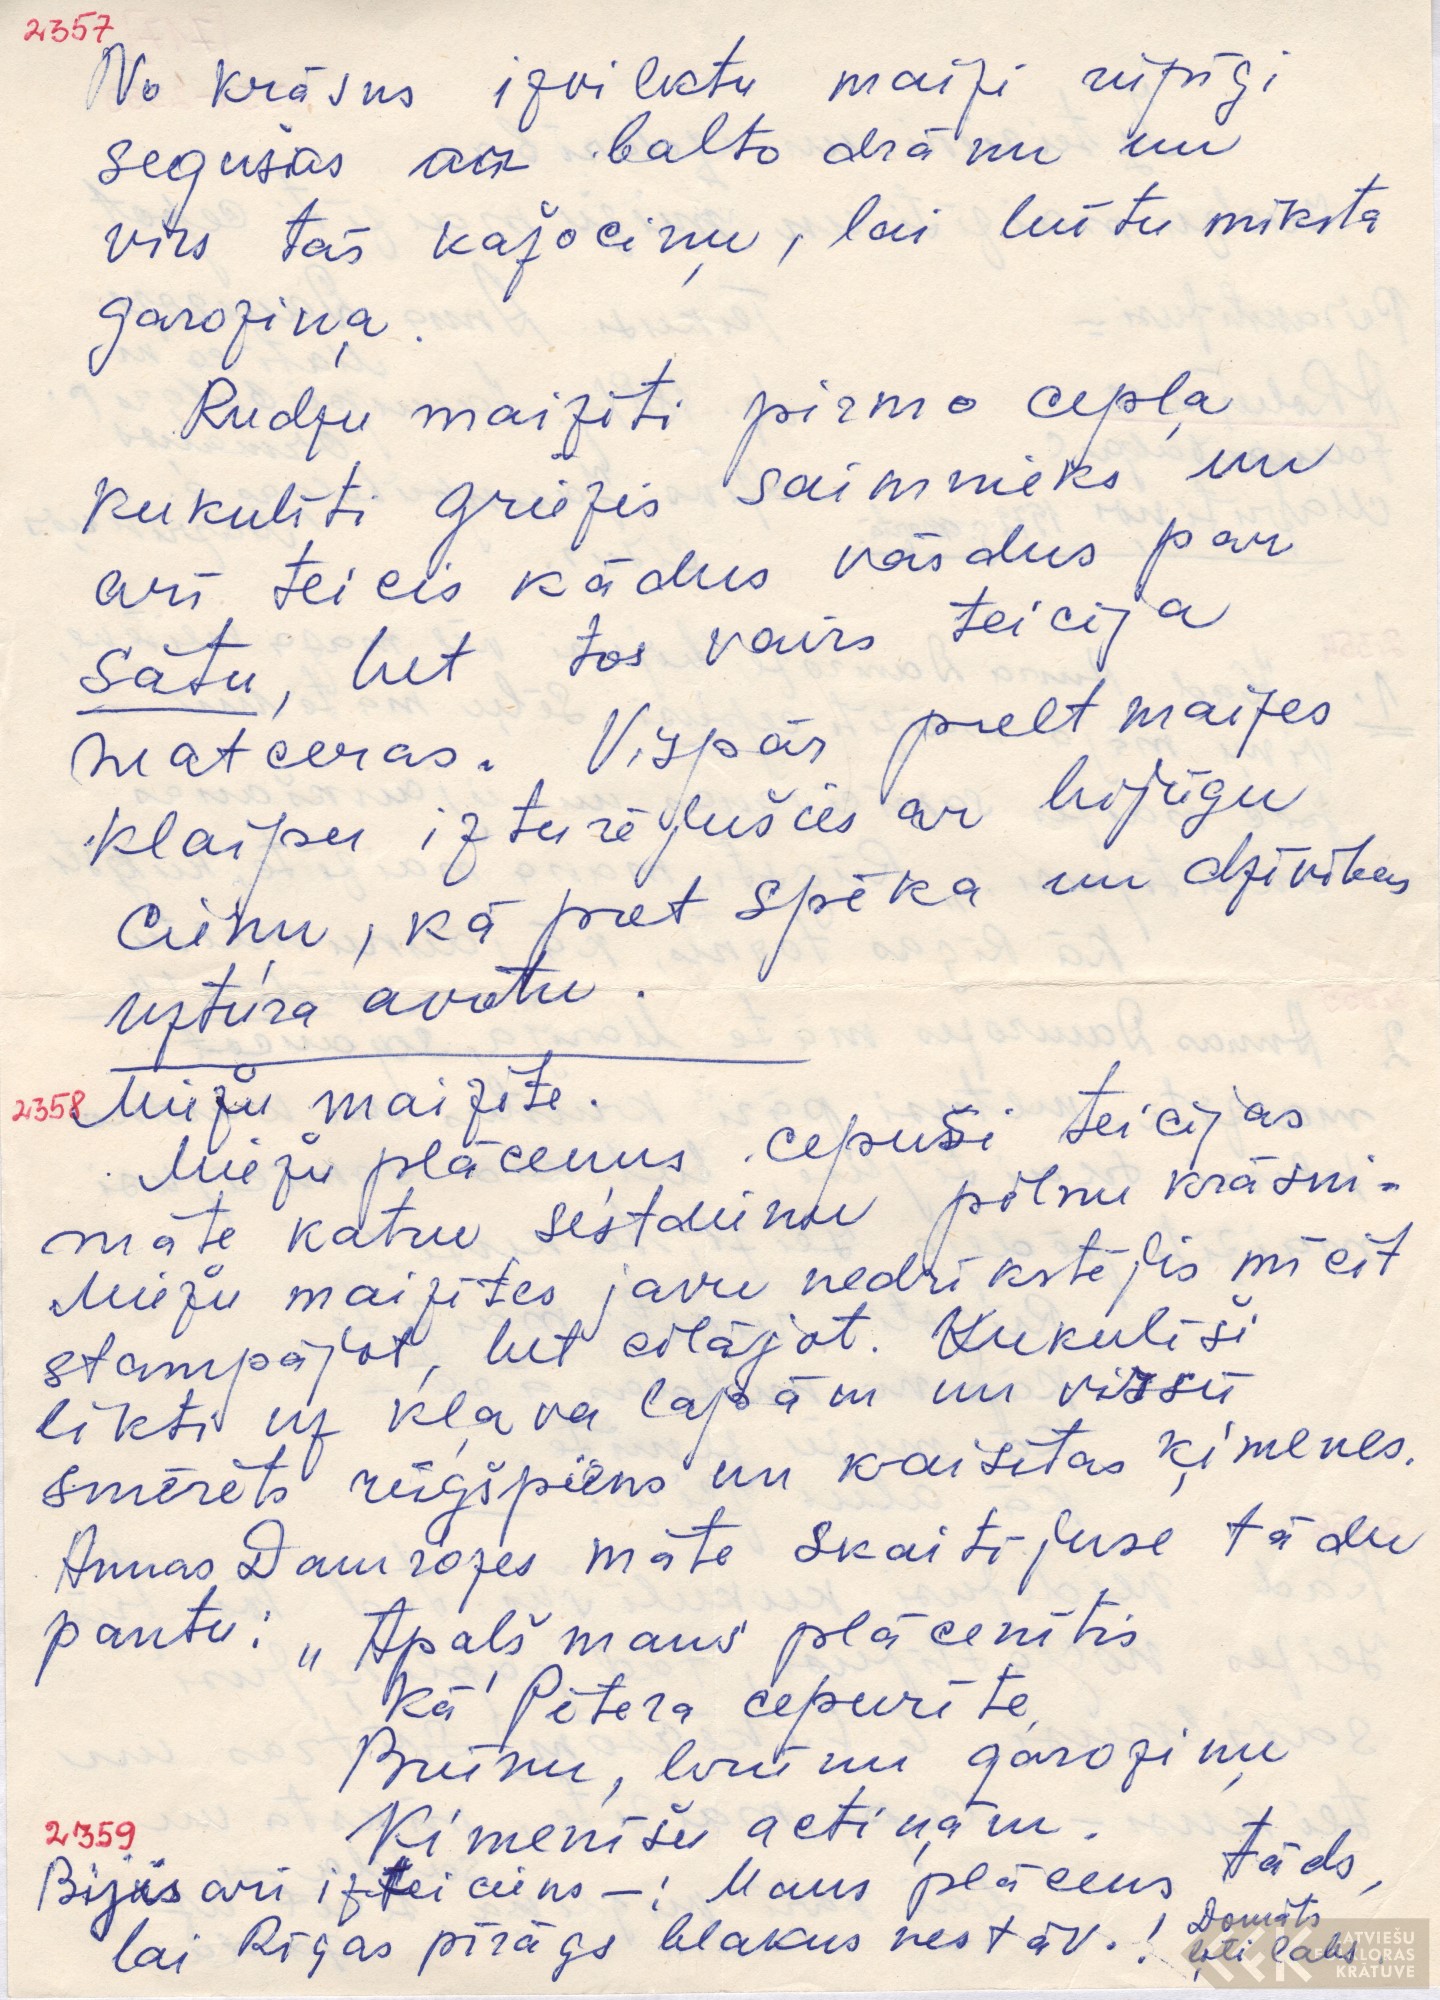 2357
No krāsns izvilktu maizi rūpīgi
segušas ar balto drānu un
virs tās kažociņu, lai būtu mīksta
garoziņa.
Rudzu maizīti pirmo cepļa
kukulīti griezis saimnieks un
arī teicis kādus vārdus par
sātu, bet tos vairs teicēja
neatceras. Vispār pret maizes
klaipu izturējušies ar bijīgu
cieņu, kā pret spēka un dzīvības
uztura avotu.
2358
Miežu maizīte.
Miežu plāceņus cepusi teicējas
māte katru sestdienu pilnu krāsni.
Miežu maizītes javu nedrīkstējis mīcīt
stampājot, bet cilājot. Kukulīši
likti uz kļava lapām un virsū
smērēts rūgšpiens un kaisītas ķimenes.
Annas Damrozes māte skaitījuse tādu
pantu: „Apaļš mans plācenītis
kā Pētera cepurīte,
Brūnu, brūnu garoziņu
Ķimenīšu actiņām.
2359
Bijis arī izteiciens –: Mans plācens tāds,
lai Rīgas pīrāgs blakus nestāv.! Domāts
ļoti labs.
LATVIEŠU
FOLKLORAS
KRĀTUVE